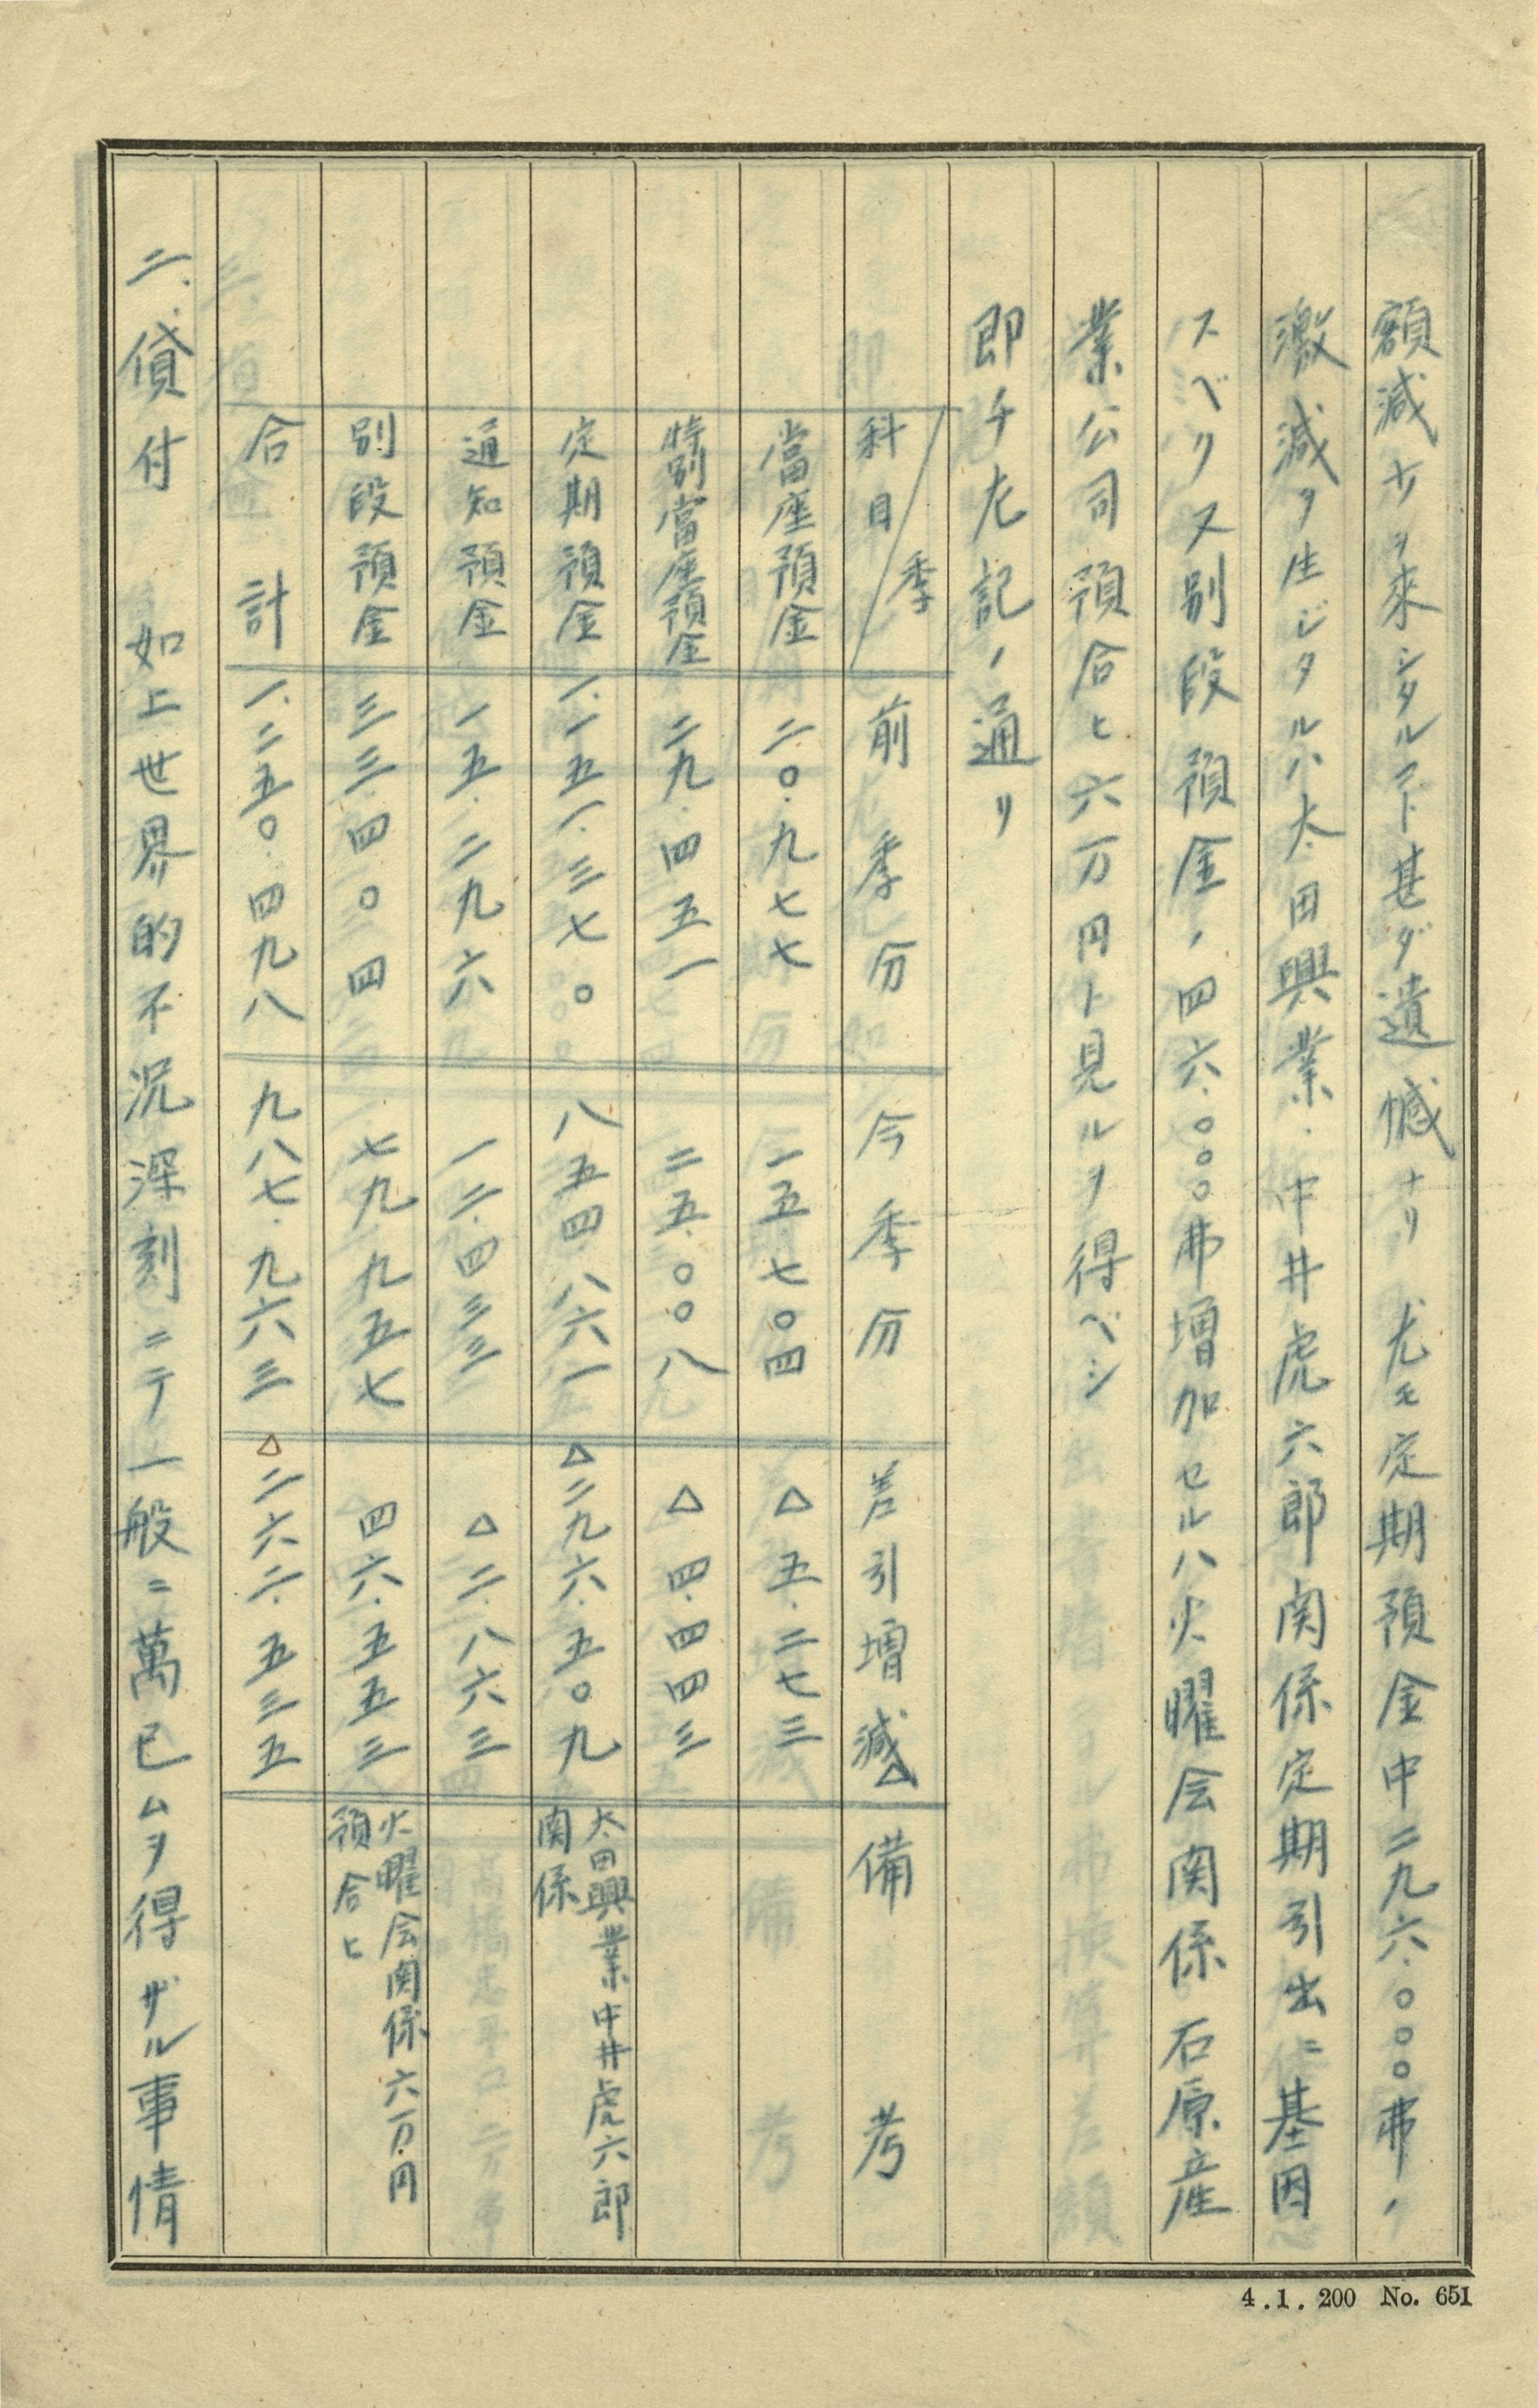 額減少ヲ來シタルコト甚ダ遺憾ナリ 尤モ定期預金中二九六.〇〇〇弗ノ
激減ヲ生ジタルハ太田興業.中井虎六郎関係定期引出ニ基因
スベク又別段預金ノ四六.〇〇〇弗増加セルハ火曜会関係石原産
業公司預合ヒ六万円ト見ルヲ得ベシ
即チ左記ノ通リ
科目/季 前季分 今季分 差引増減△ 備考
當座預金 二〇.九七七 一五.七〇四 △五.二七三
特別當座預金 二九.四五一 二五.〇〇八 △四.四四三
定期預金 一.一五一.三七〇 八五四.八六一 △二九六.五〇九 太田興業中井虎六郎
関係
通知預金 一五.二九六 一二.四三三 △二.八六三
別段預金 三三.四〇四 七九.九五七 四六.五五三 火曜会関係六万円
預合ヒ
合計 一.二五〇.四九八 九八七.九六三 △二六二.五三五
二.貸付 如上世界的不況深刻ニテ一般ニ萬已ムヲ得ザル事情
4.1.200 No. 651